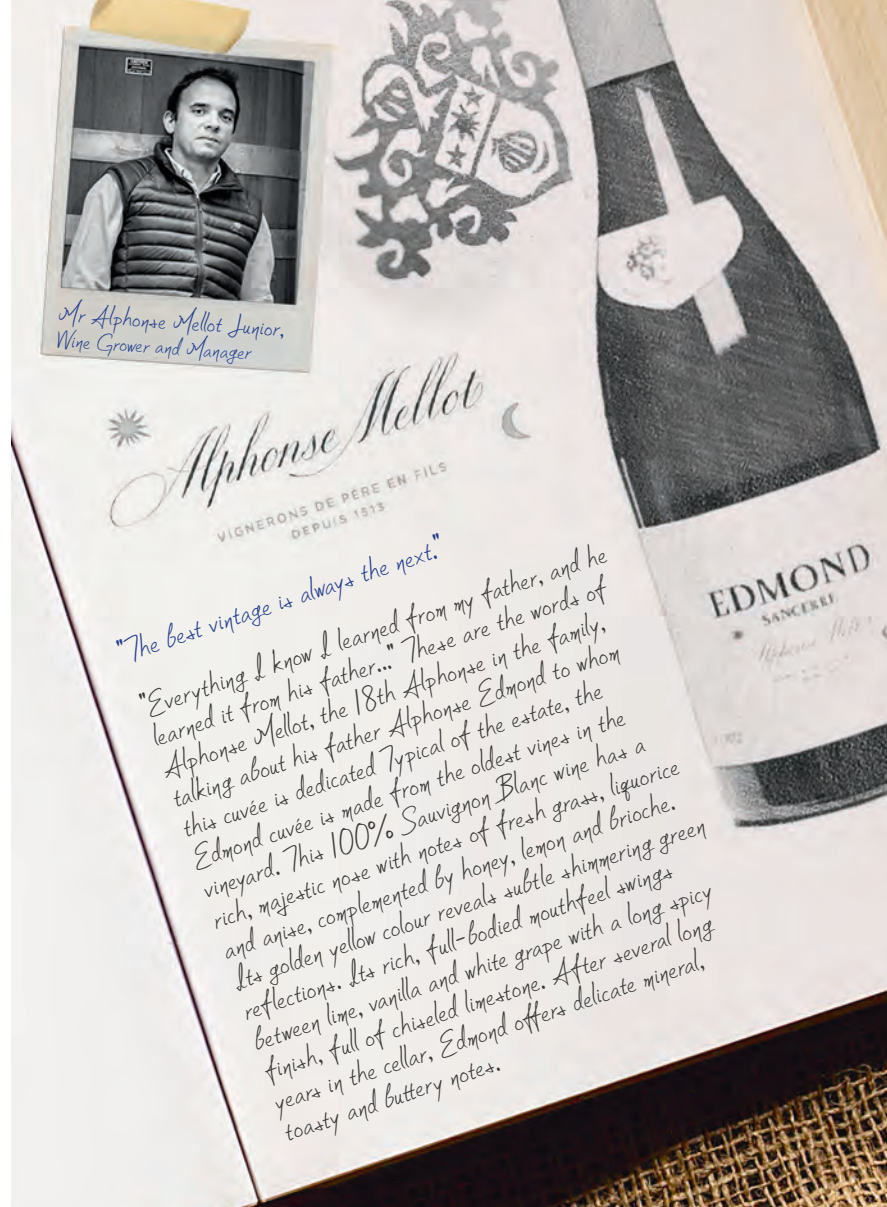 Mr Alphonse Mellot Junior,
Wine Grower and Manager
Alphonse Mellot
VIGNERONS DE PÈRE EN FILS
DEPUIS 1513
"The best vintage is always the next."
"Everything I know I learned from my father, and he
learned it from his father..." These are the words of
Alphonse Mellot, the 18th Alphonse in the family,
talking about his father Alphonse Edmond to whom
this cuvée is dedicated Typical of the estate, the
Edmond cuvée is made from the oldest vines in the
vineyard. This 100% Sauvignon Blanc wine has a
rich, majestic nose with notes of fresh grass, liquorice
and anise, complemented by honey, lemon and brioche.
Its golden yellow colour reveals subtle shimmering green
reflections. Its rich, full-bodied mouthfeel swings
between lime, vanilla and white grape with a long spicy
finish, full of chiseled limestone. After several long
years in the cellar, Edmond offers delicate mineral,
toasty and buttery notes.
EDMOND
SANCERRE
Alphonse Mellot